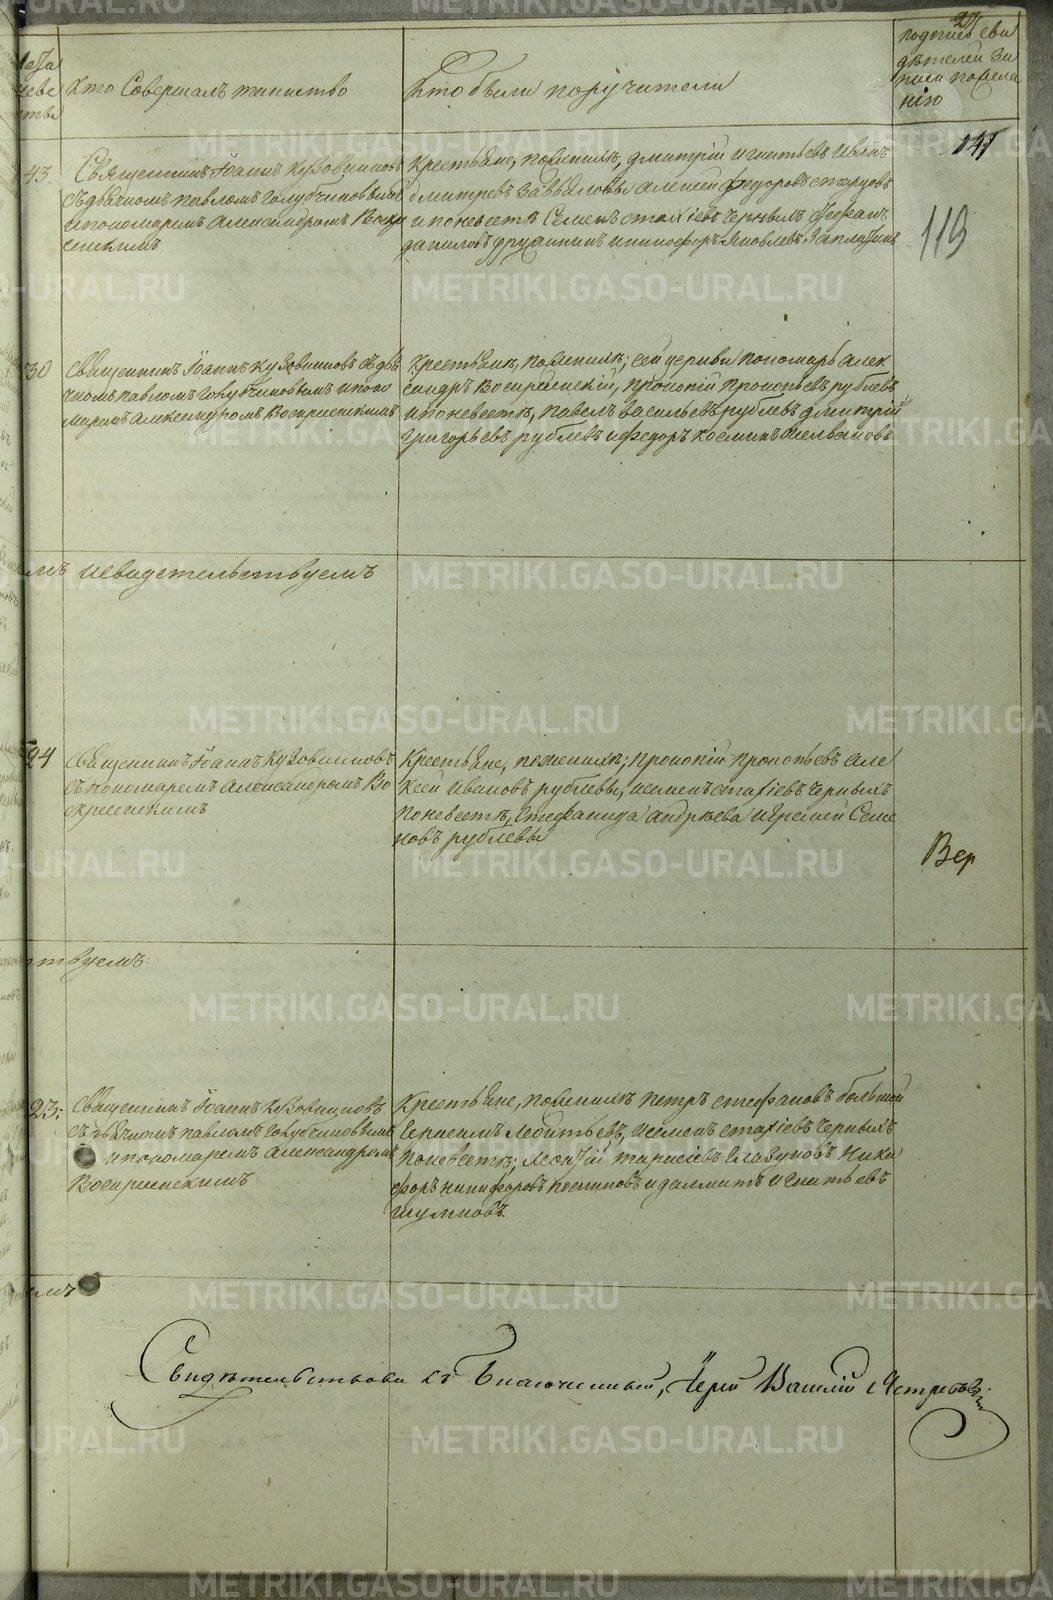 27
Лета
Кто Совершалъ таинство
Кто были поручители
подпись сви
дѣтелей за
писи по жела
нію
141
119
43.
Священникъ Іоаннъ Кузовниковъ
съ дьячкомъ павломъ Голубчиковымъ
и пономаремъ Александромъ Воскре
сенскимъ
Крестьяне, по женихѣ, дмитрій игнатьевъ иванъ
дмитревъ Завьяловы алексѣй федоровъ
и по невестѣ Семенъ стахіевъ Черныхъ Феофанъ
даниловъ дружининъ и никифоръ Яковлевъ Заплатинъ
30
Священникъ Іоаннъ Кузовниковъ съ дья
чкомъ павломъ Голубчиковымъ и поно
маремъ александромъ Воскресенскимъ
Крестьяне, по женихѣ; сей церкви пономарь Алек
сандръ Воскресенскій, прокопій прокопьевъ рублевъ
и по невестѣ, павелъ васильевъ рублевъ дмитрій
григорьевъ рублевъ и федоръ козминъ
мъ и свидетельствуемъ
24
Священникъ Іоаннъ Кузовниковъ
съ пономаремъ александромъ Во
скресенскимъ
Крестьяне, по женихѣ; прокопій прокопьевъ але
ксей ивановъ рублевы, и семенъ стахіевъ Черныхъ
по невестѣ, Стефанида андрѣева и Сем
новъ рублевы
Вер
ствуемъ
23.
Священникъ Іоаннъ Кузовниковъ
съ дьячкомъ павломъ Голубчиковымъ
и пономаремъ александромъ
Воскресенскимъ
Крестьяне, по женихѣ петръ стефановъ большой
и семенъ стахіевъ Черныхъ
по невестѣ; леонтій тарасьевъ Ники
форъ никифоровъ и далматъ игнатьевъ
шумковъ.
мъ
Свидѣтельствовалъ Благочинный, Іерей Василій Ястребовъ.
METRIKI.GASO-URAL.RU